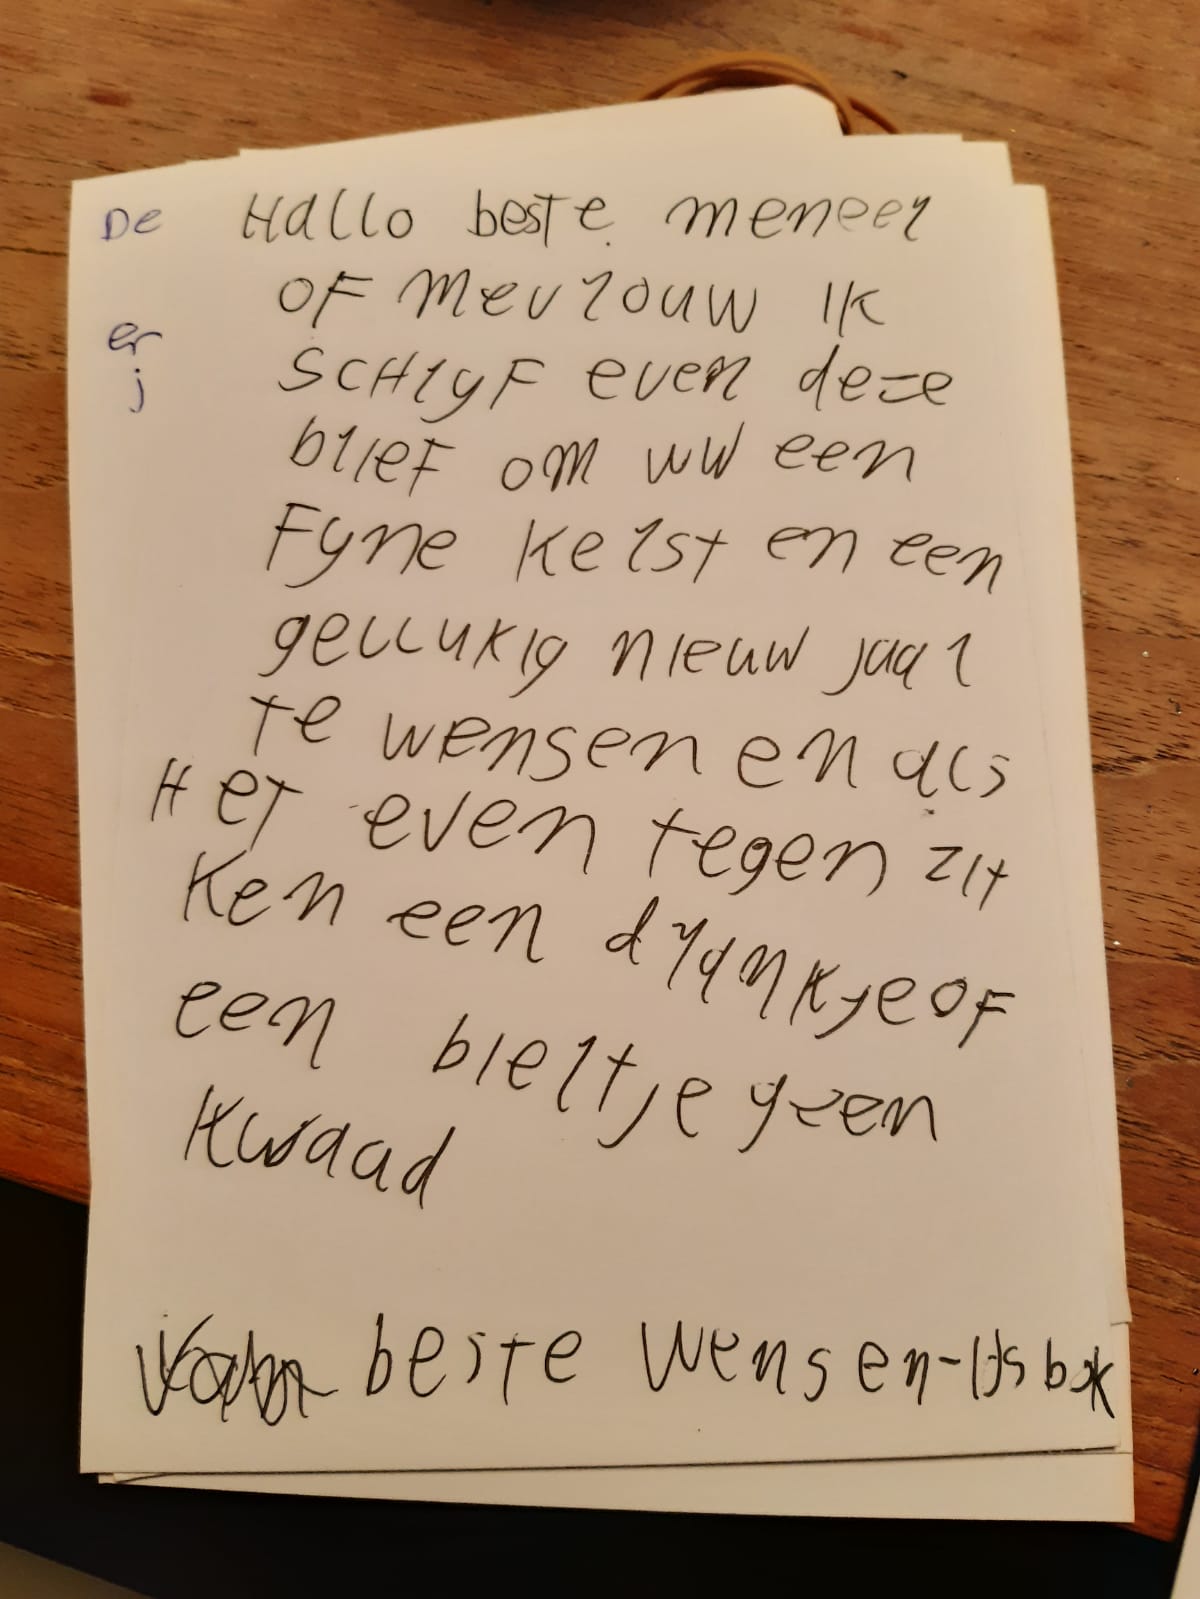 De Hallo beste meneer
OF Mevrouw Ik
er
SCHryF even deze
j
brieF om uw een
Fyne Kerst en een
gellukig nieuw jaar
te wensen en als
HeT even tegen zit
Ken een drankje OF
een biertje geen
Kwaad
beste wensen-IJsbok